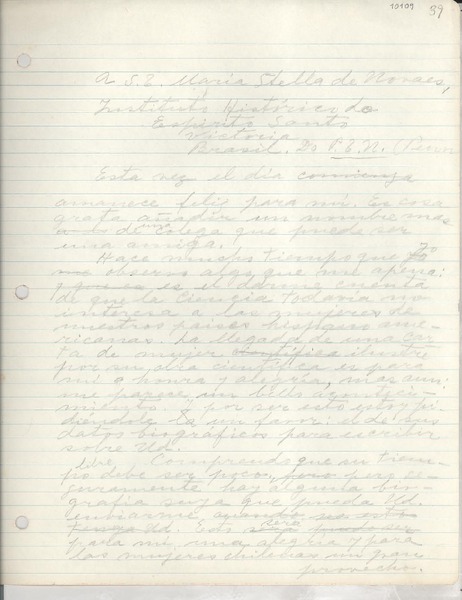 10109 39
A S. E. María Stella de Novaes,
Instituto Histórico do
Espirito Santo
Victoria
Brasil. Do P.E.N.
Esta vez el día comienza
amanece feliz para mí. Es cosa
grata añadir un nombre más
de colega que puede ser
una amiga.
Hace mucho tiempo que yo
observo algo que me apena:
es el darme cuenta
de que la Ciencia todavía no
interesa a las mujeres de
nuestros países hispano ame-
ricanos. La llegada de una car-
ta de mujer científica ilustre
por su obra científica es para
mí honra y alegría, mas aun:
me parece un bello aconteci-
miento. Y por ser esto estoy pi-
diéndole un favor: el de sus
datos biográficos para escribir
sobre Ud.
libre
Comprendo que su tiem-
po debe ser poco, pero se-
guramente hay alguna bio-
grafía suya que pueda Ud.
enviarme
Ud. Esto será
para mí una alegría y para
las mujeres chilenas un gran
provecho.